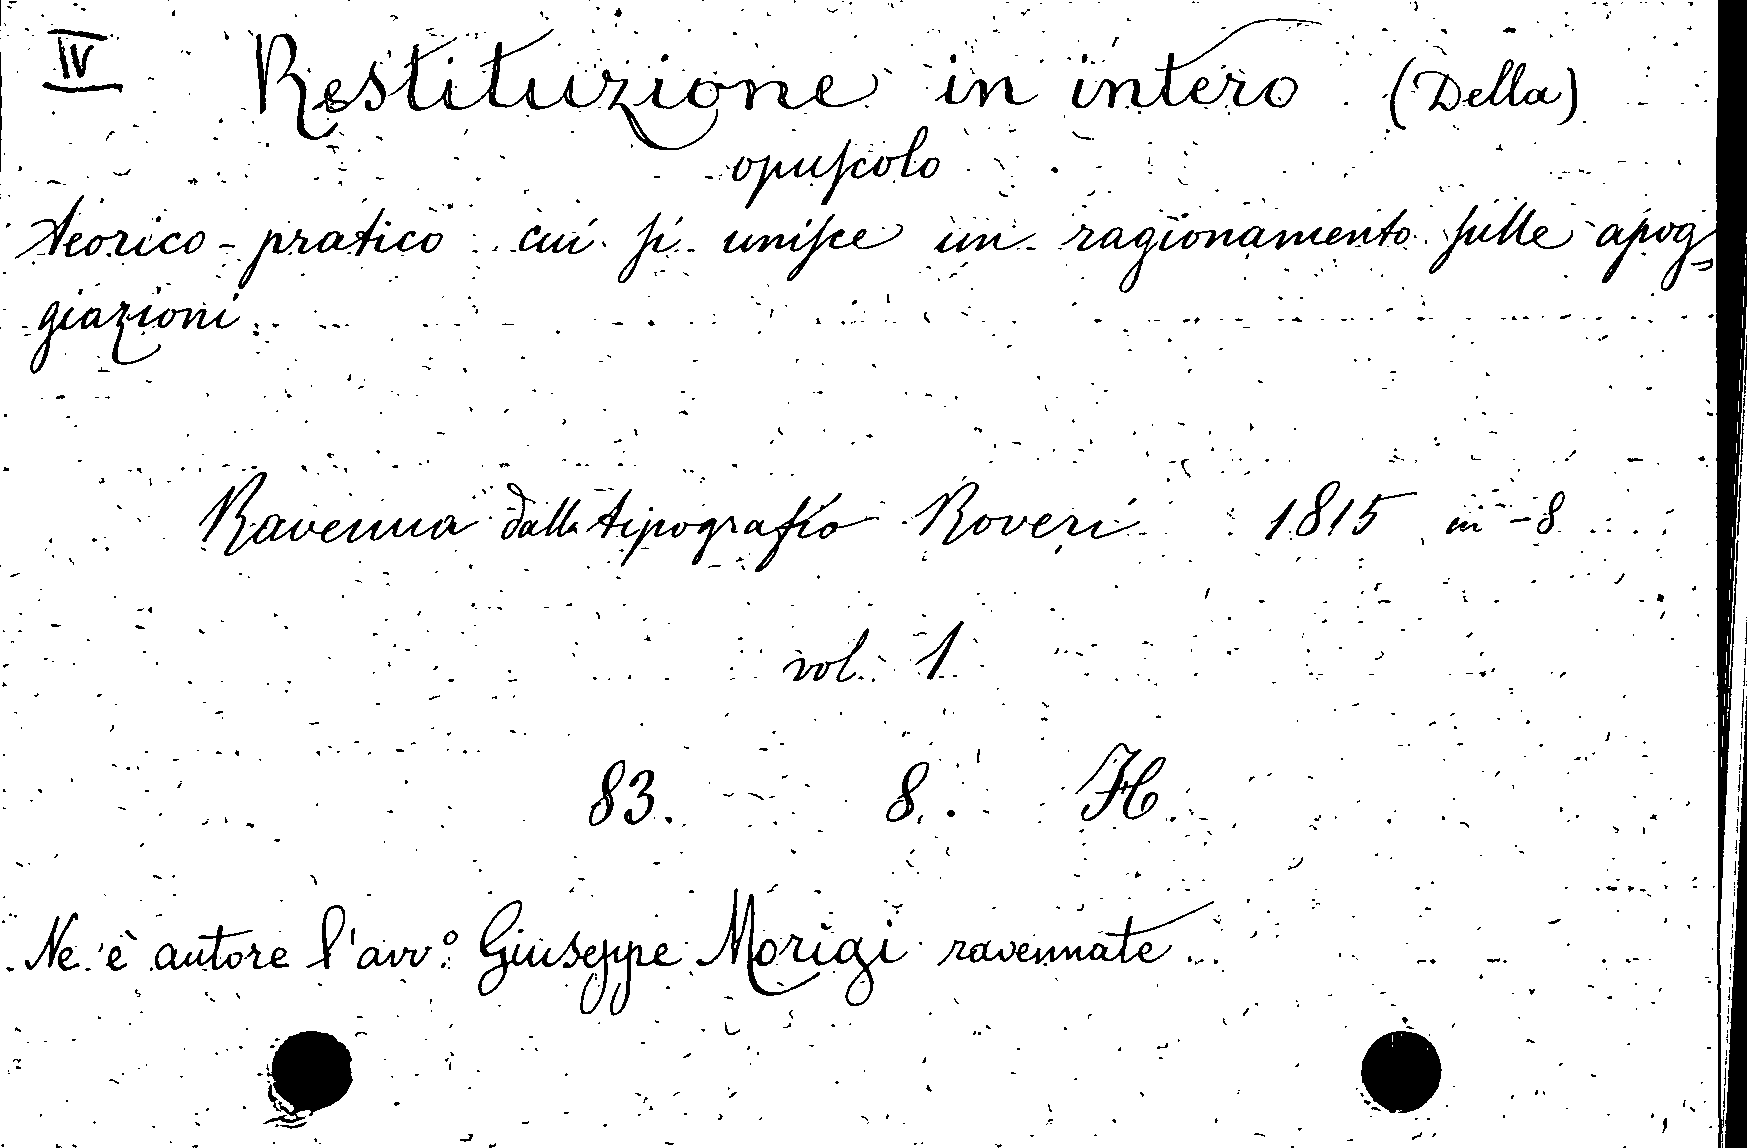 IV Restituzione in intero (Della)
opuscolo
teorico-pratico cui si unisce un ragionamento sulle apog=
giazioni.
Ravenna dalla tipografia Roveri 1815 in-8
vol. 1
83. 8. H.
Ne è autore l'avv.º Giuseppe Morigi ravennate